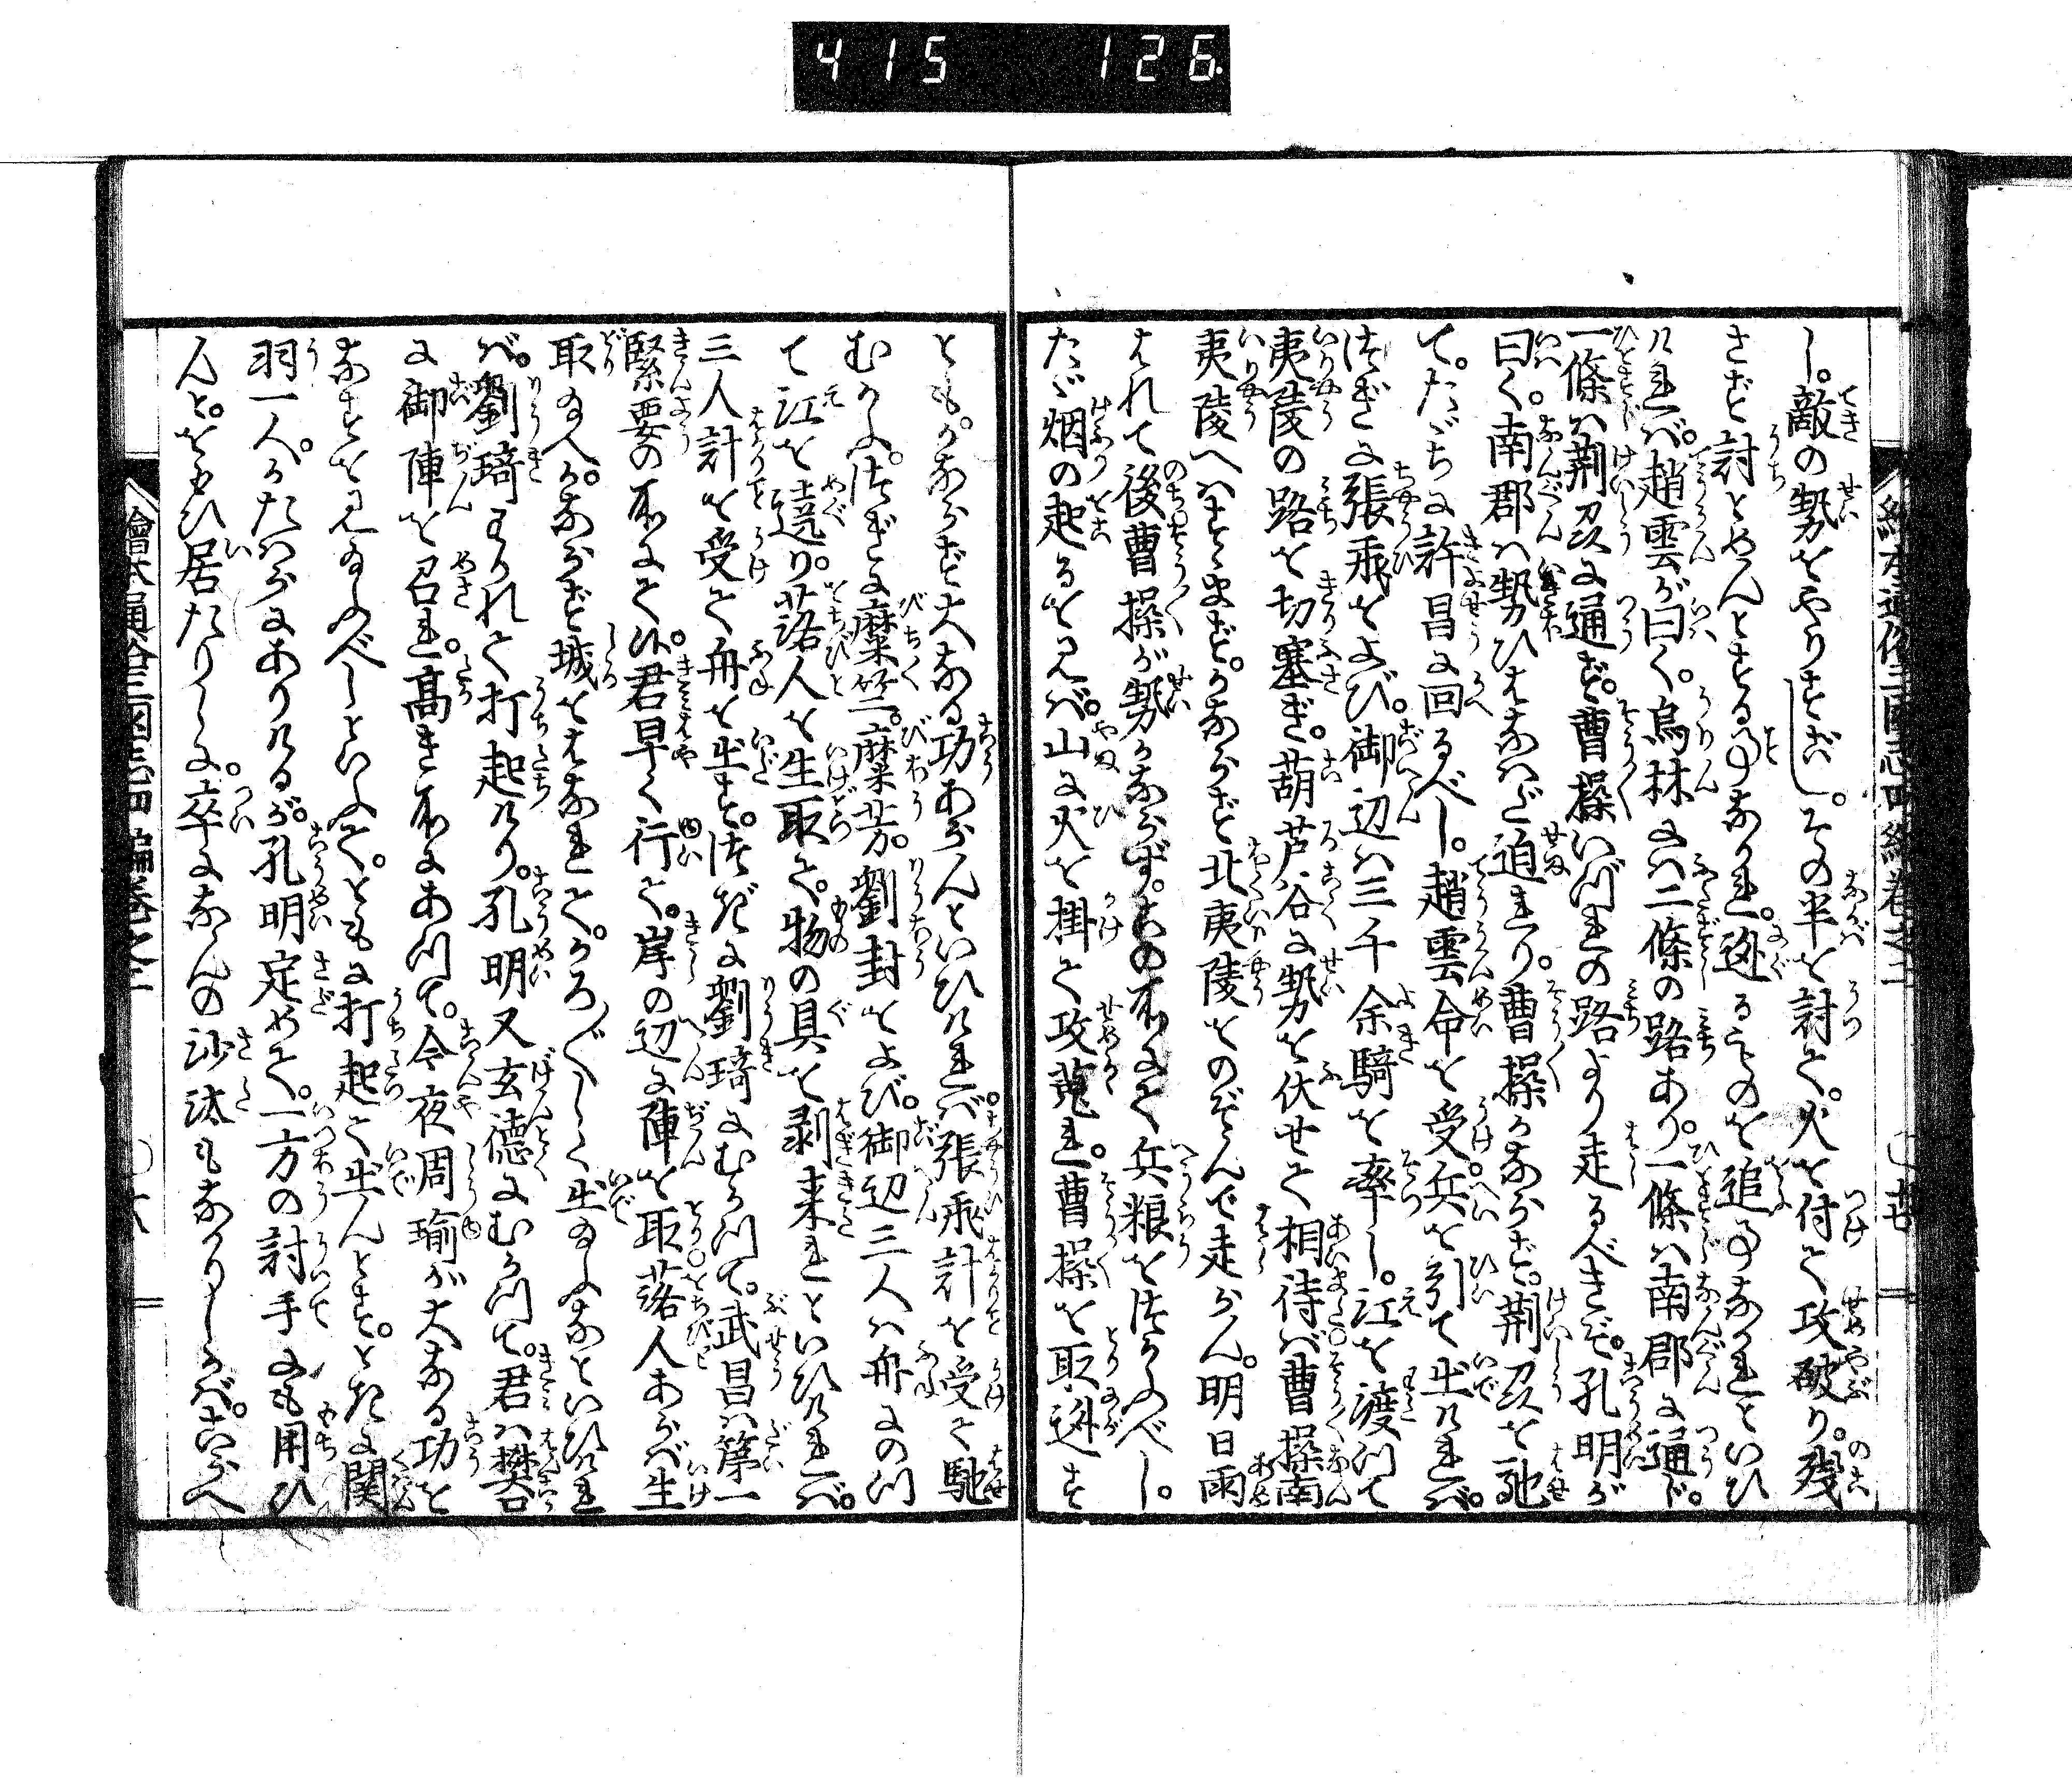 415 126
し。敵の勢をやりすごし。その半を討て。火を付て攻破り。残
さず討とめんとする事なかれ。迯るものを追事なかれといひ
ければ。趙雲が曰く。烏林には二條の路あり。一條は南郡に通ず。
一條は荊州に通ず。曹操いづれの路より走るべきぞ。孔明が
曰く。南郡は勢ひはなはだ迫れり。曹操かならず。荊州を馳
て。たゞちに許昌に回るべし。趙雲命を受兵を引て出ければ。
次ぎに張飛をよび。御辺は三千余騎を率し。江を渡つて
夷陵の路を切塞ぎ。葫芦谷に勢を伏せて相待ば曹操南
夷陵へはすゝまず。かならず北夷陵をのぞんで走らん。明日雨
はれて後曹操が勢かならず。この所にて兵粮をつかふべし。
たゞ烟の起るを見ば。山に火を掛て攻蒐れ。曹操を取迯す
とも。かならず大なる功あらんといひければ張飛計を受て馳
むかふ。次ぎに糜竺。糜芳。劉封をよび。御辺三人は舟にのつ
て江を遶り。落人を生取て。物の具を剥来れといひければ。
三人計を受て舟を出す。次ぎに劉琦にむかつて。武昌は第一
緊要の所にて候。君早く行て。岸の辺に陣を取落人あらば生
取給へ。かならず城をはなれて。かろ〴〵しく出給ふなといひければ
ば。劉琦わかれて打起けり。孔明又玄徳にむかつて。君は樊口
に御陣を召れ。高き所にあつて。今夜周瑜が大なる功を
なすを見給ふべしといふて。ともに打起て出んとす。ときに関
羽一人。かたはらにありけるが。孔明定めて。一方の討手にも用ひ
んと。をもひ居たりしに。卒になんの沙汰もなかりしかば。こらへ